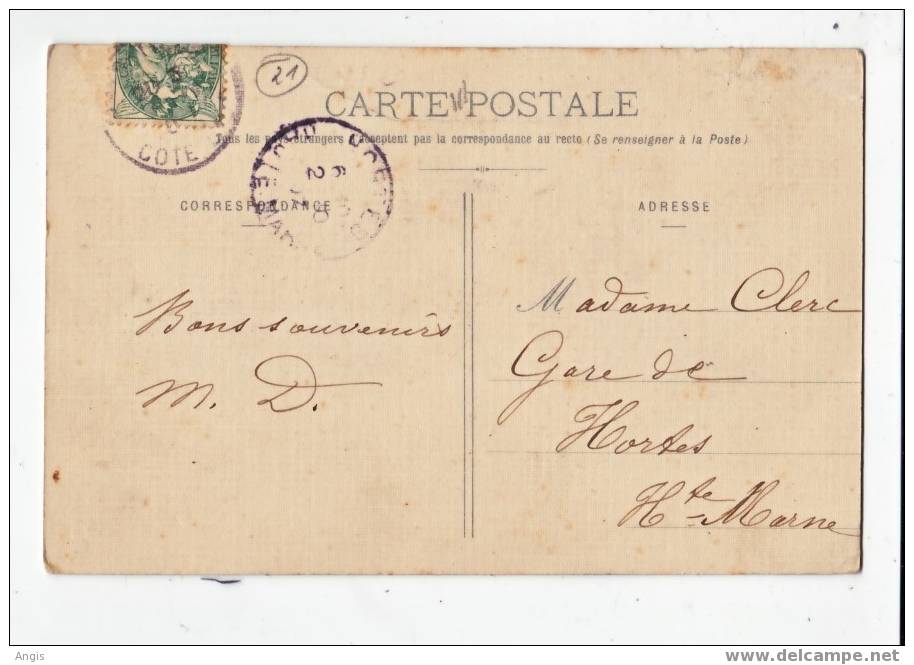 21
CARTE POSTALE
Tous les pays étrangers n'acceptent pas la correspondance au recto (Se renseigner à la Poste)
COTE
CORRESPONDANCE
ADRESSE
Bons souvenirs
M. D.
Madame Clerc
Gare de
Hortes
Hte Marne
Angis
www.delcampe.net